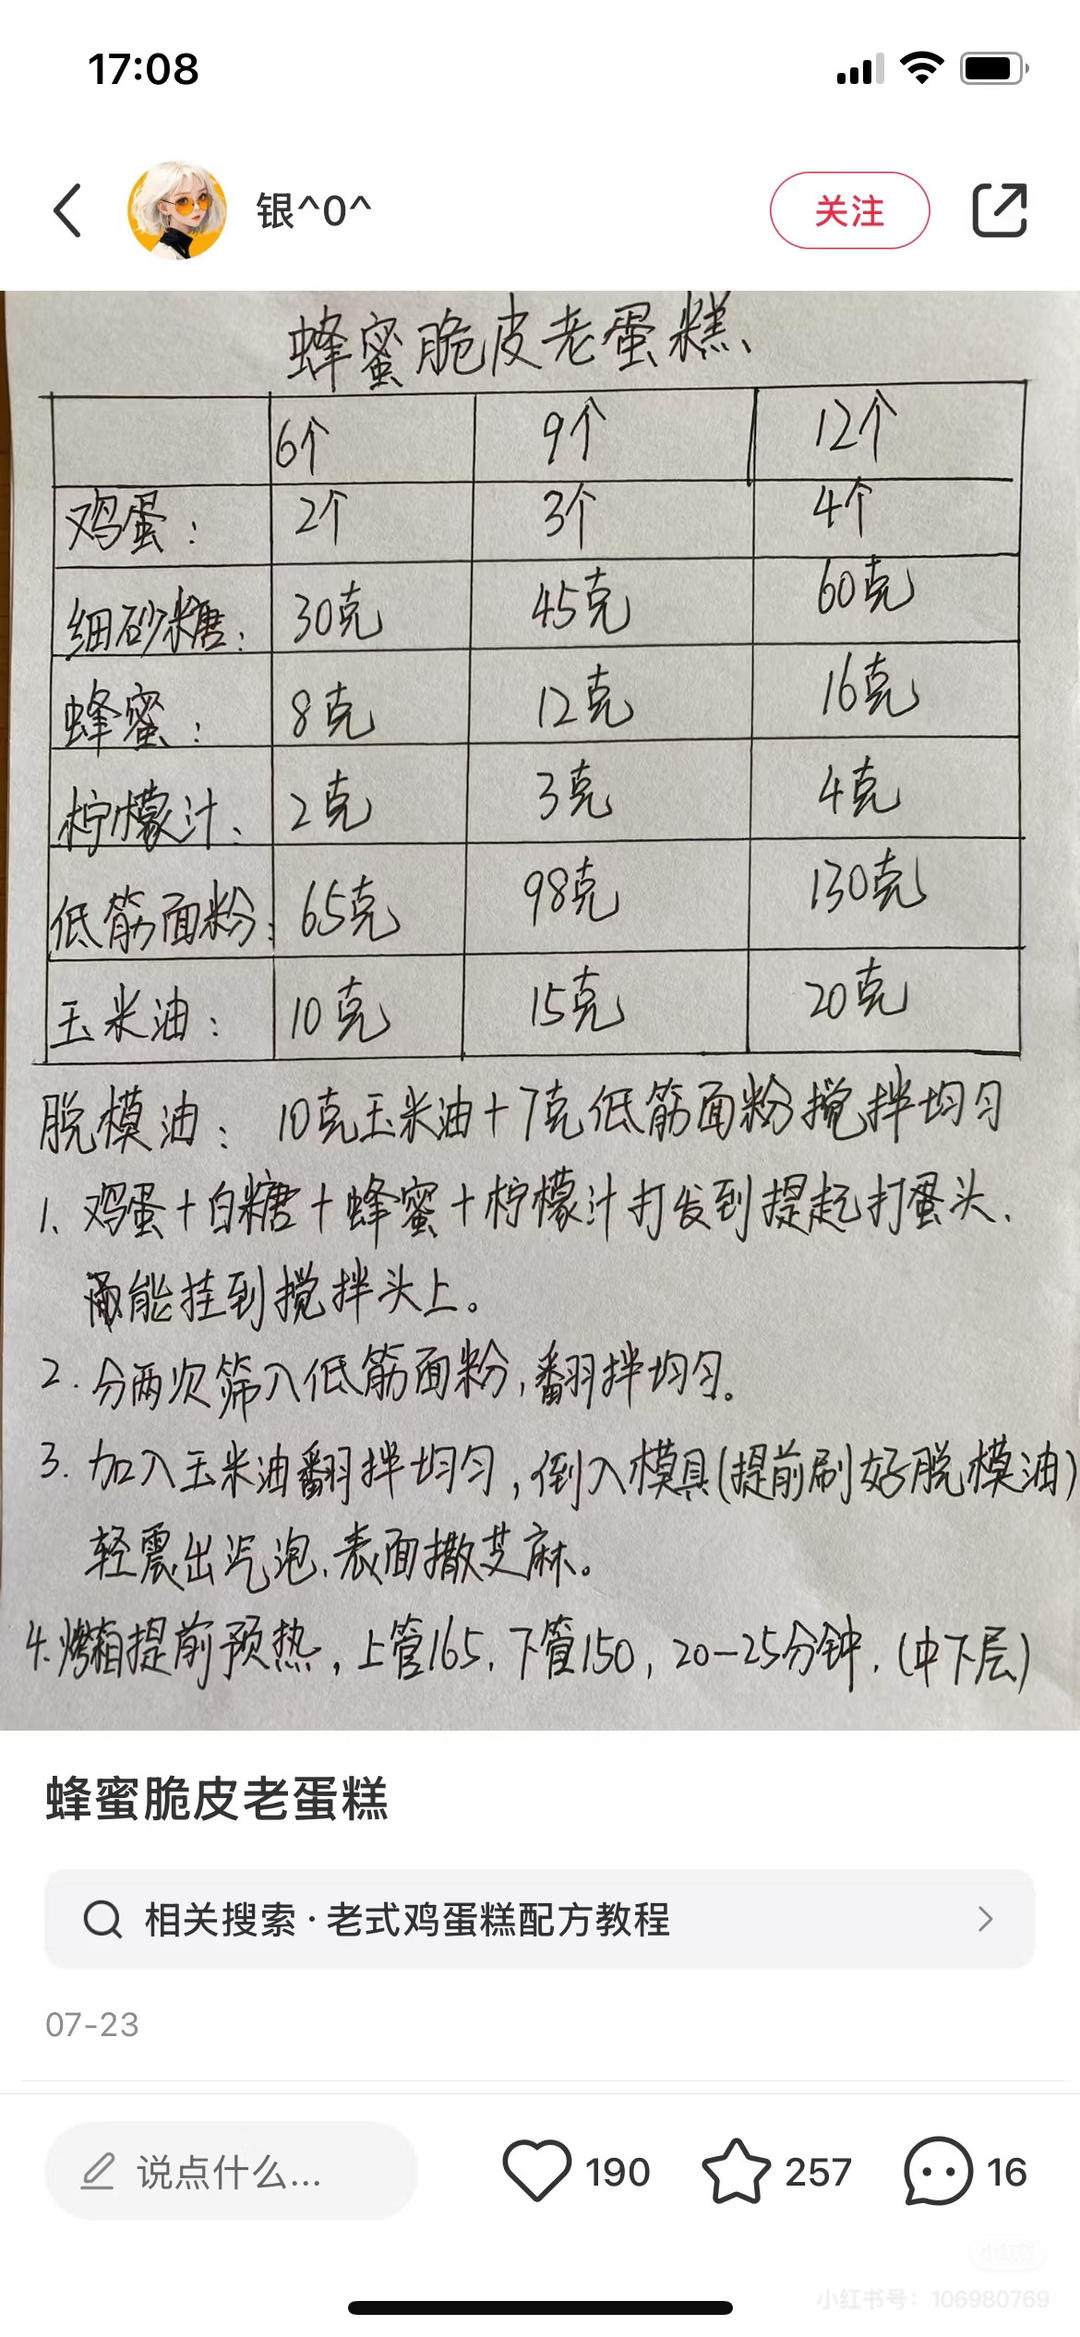 17:08
银^0^
关注
蜂蜜脆皮老蛋糕
6个 9个 12个
鸡蛋: 2个 3个 4个
细砂糖: 30克 45克 60克
蜂蜜: 8克 12克 16克
柠檬汁: 2克 3克 4克
低筋面粉: 65克 98克 130克
玉米油: 10克 15克 20克
脱模油: 10克玉米油+7克低筋面粉搅拌均匀
1、鸡蛋+白糖+蜂蜜+柠檬汁打发到提起打蛋头、
能挂到搅拌头上。
2.分两次筛入低筋面粉,翻拌均匀。
3.加入玉米油翻拌均匀,倒入模具(提前刷好脱模油)
轻震出汽泡、表面撒芝麻。
4.烤箱提前预热,上管165、下管150,20-25分钟.(中下层)
蜂蜜脆皮老蛋糕
相关搜索·老式鸡蛋糕配方教程
07-23
说点什么... 190 257 16
小红书
小红书号: 106980769